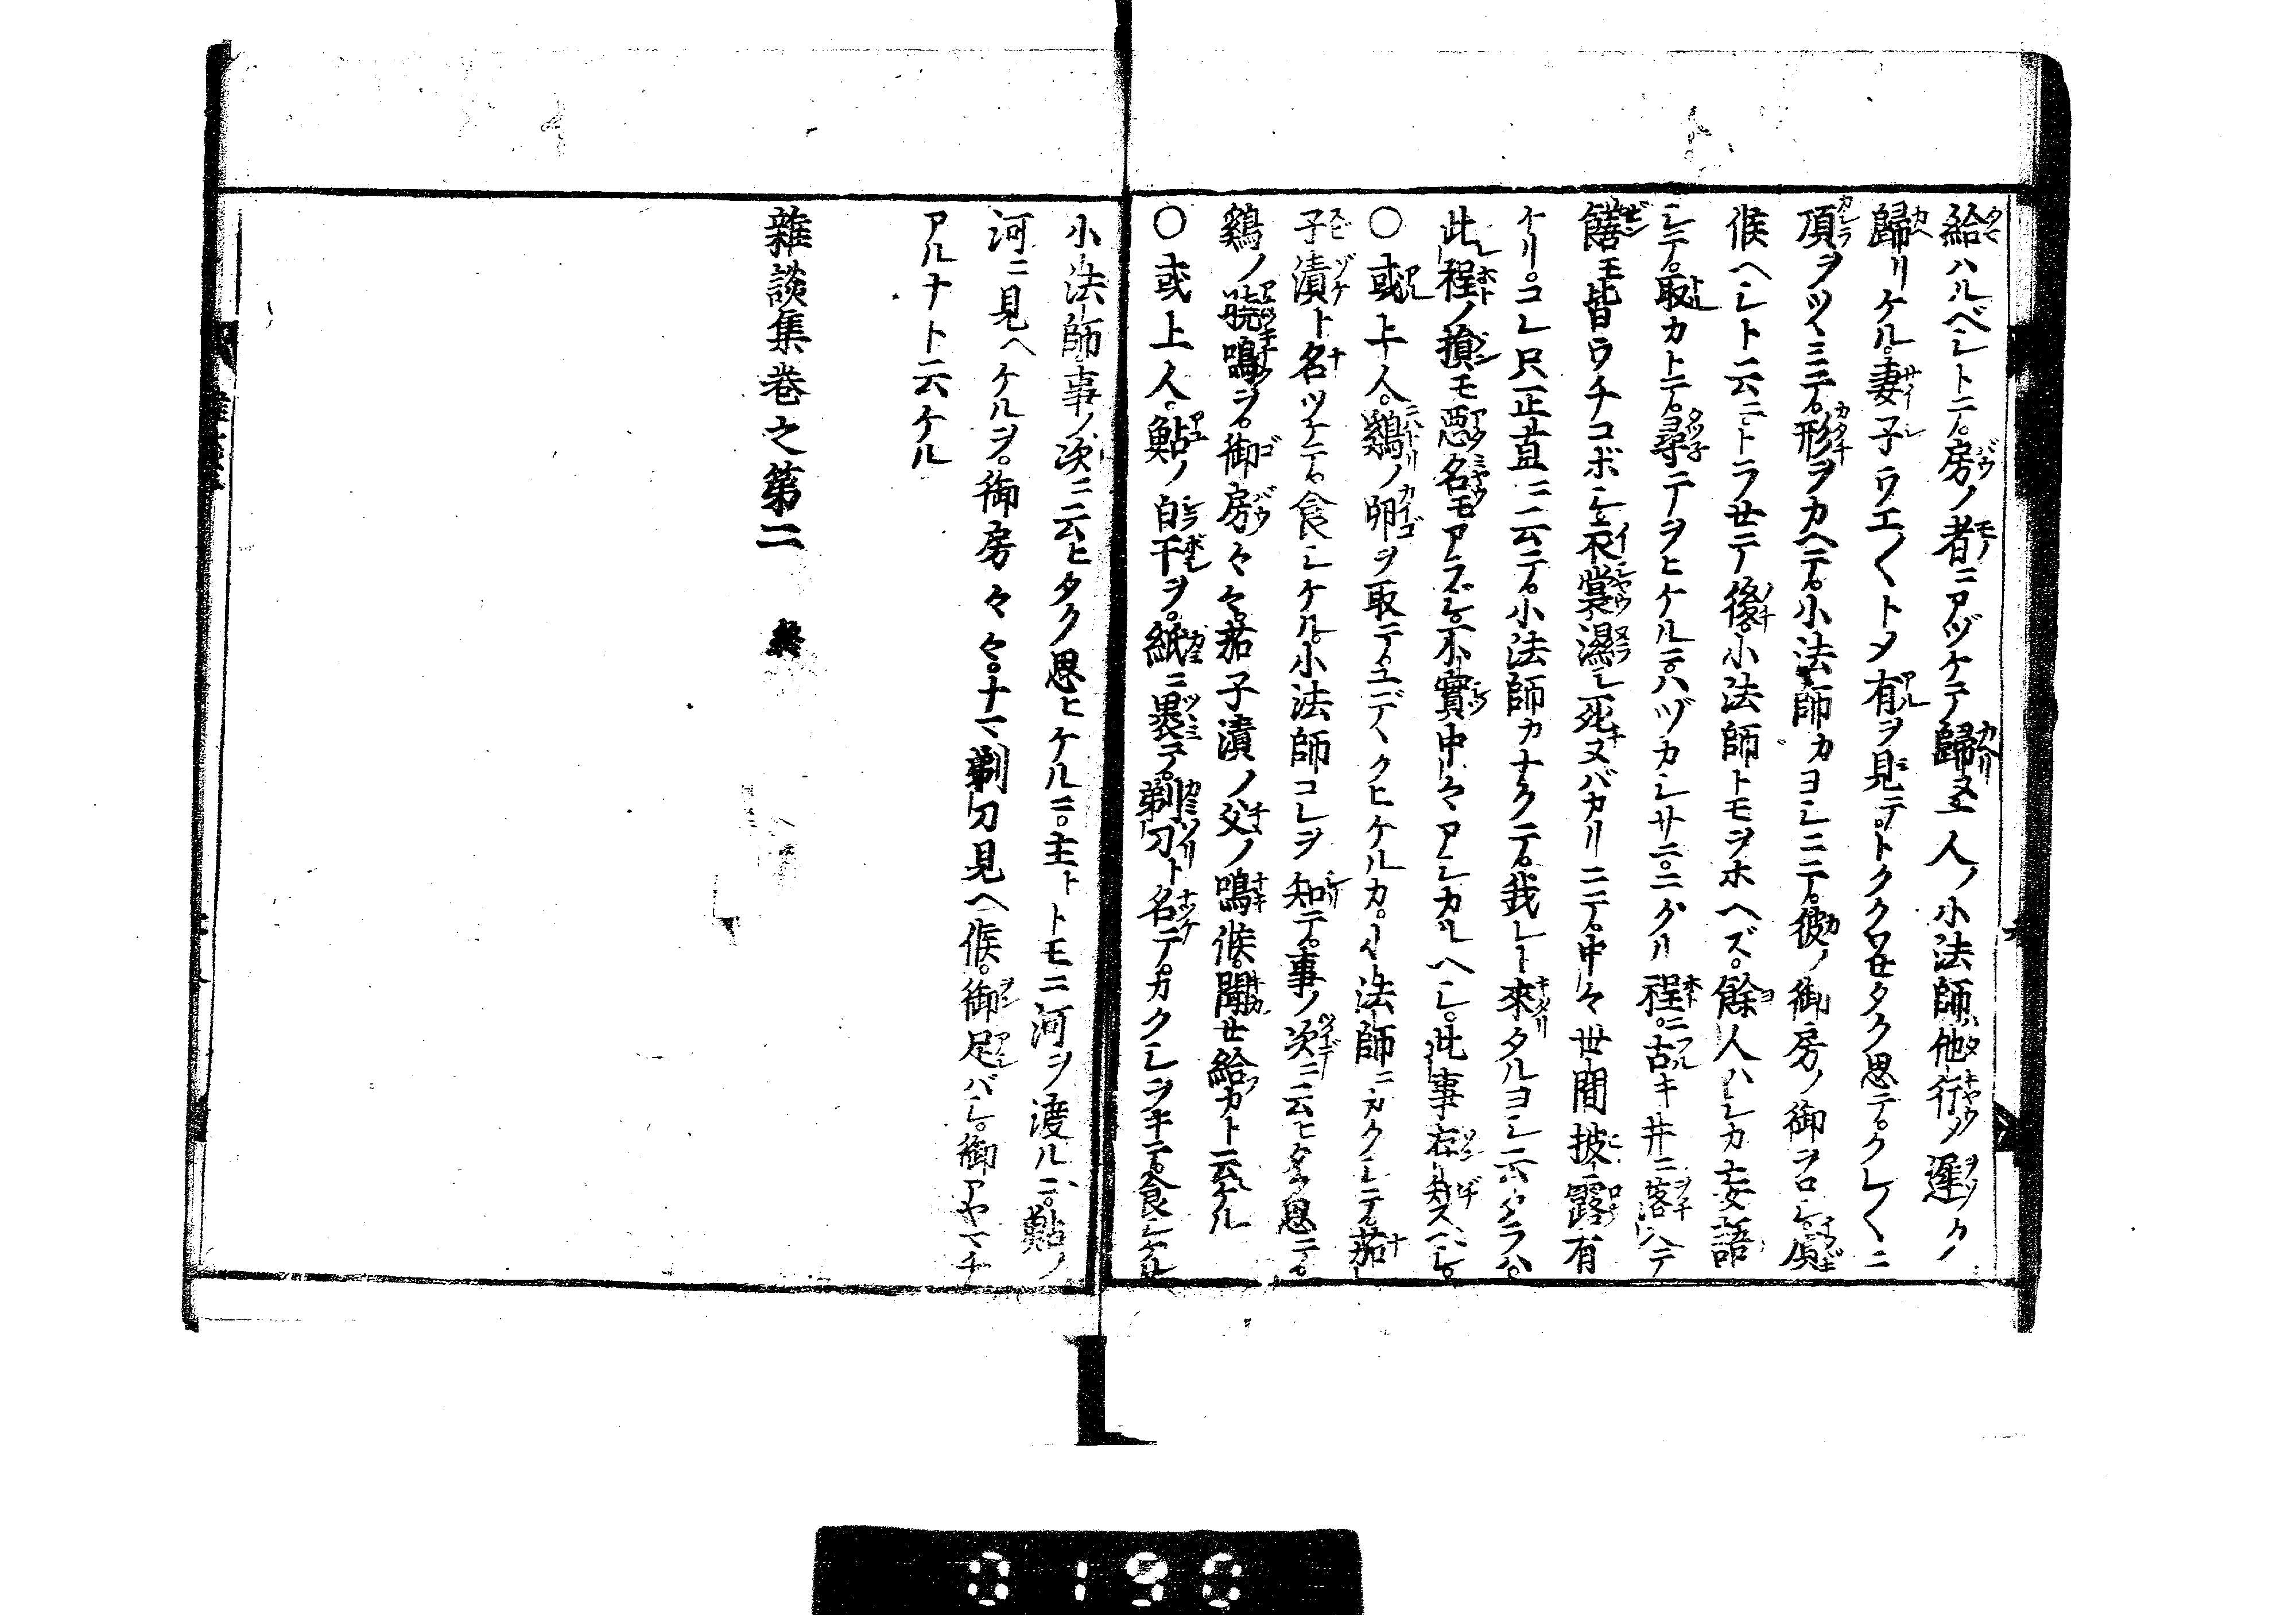 給ハルベシトテ。房ノ者ニアヅケテ歸ヌ。人ノ小法師他行メ遲ク
歸リケル。妻子ウエ〳〵トメ有ヲ見テ。トククワセタク思テ。クレ〳〵ニ
頂ヲツヽミテ。形ヲカヘテ。小法師カヨシニテ。彼ノ御房ノ御ヲロシ
候ヘシト云ニトラセテ後。小法師トモヲホヘズ。餘人ハシカ妄語
シテ。取カトテ。尋テヲヒケルニ。ハヅカシサニ。ニグル程ニ。古キ井ニ落ハテ
饍モ皆ウチコボシ。衣裳濕シ。死ヌバカリニテ。中々世間披露有
ケリ。コレ只正直ニ云テ。小法師カナクテ。我レ來タルヨシ云タラハ。
此程ノ損モ惡名モアラズ。不實中々アシカルヘシ。此事存知スヘシ。
〇或上人。鷄ノ卵ヲ取テ。ユデヽクヒケルカ。小法師ニカクシテ。茄
子漬ト名ツケテ。食シケル。小法師コレヲ知テ。事ノ次ニ云ヒタク思テ。
鷄ノ曉鳴ヲ。御房々々。茄子漬ノ父ノ鳴候。聞セ給カト云ケル
〇或上人。鮎ノ白干ヲ。紙ニ裹テ。剃刀ト名テ。カクシヲキテ。食シケル
小法師事ノ次ニ云ヒタク思ヒケルニ。主トトモニ河ヲ渡ルニ。鮎ノ
河ニ見ヘケルヲ。御房々々。ナマ剃刀見ヘ候。御足バシ。御アヤマチ
アルナト云ケル
雜談集巻之第二 終
0190